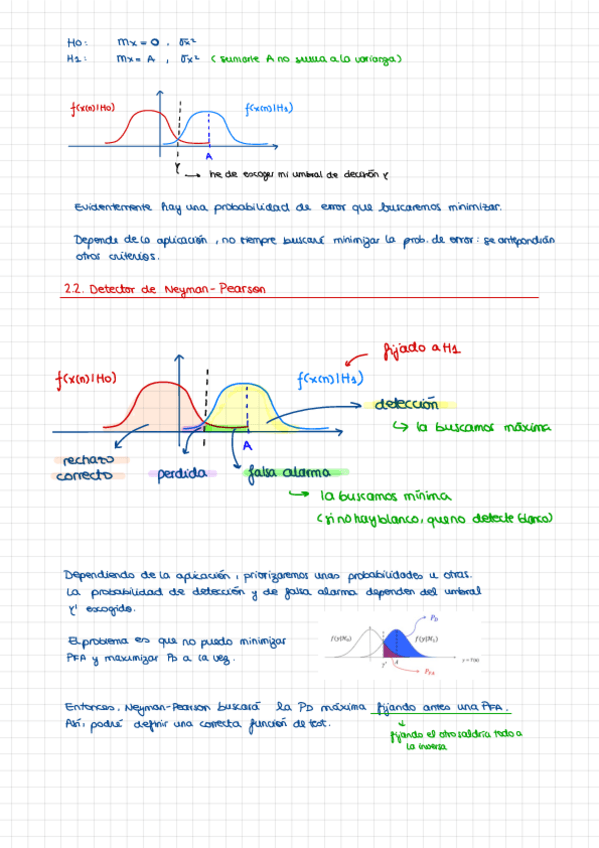 H0: mx = 0 , σx²
H1: mx = A , σx² (sumarle A no suma a la varianza)
f(x(n)|H0) f(x(n)|H1)
A
γ → he de escoger mi umbral de decisión γ
Evidentemente hay una probabilidad de error que buscaremos minimizar.
Depende de la aplicación, no siempre buscaré minimizar la prob. de error: se antepondrán
otros criterios.
2.2. Detector de Neyman-Pearson
fijado a H1
f(x(n)|H0) f(x(n)|H1)
detección
↳ la buscamos máxima
A
rechazo
correcto
perdida
falsa alarma
↳ la buscamos mínima
(si no hay blanco, que no detecte blanco)
Dependiendo de la aplicación, priorizaremos unas probabilidades u otras.
La probabilidad de detección y de falsa alarma dependen del umbral
γ' escogido.
El problema es que no puedo minimizar
PFA y maximizar PD a la vez.
PD
f(y|H0) f(y|H1)
γ' A
PFA
Entonces, Neyman-Pearson buscará la PD máxima fijando antes una PFA.
Así, podré definir una correcta función de test.
fijando el otro saldría todo a
la inversa